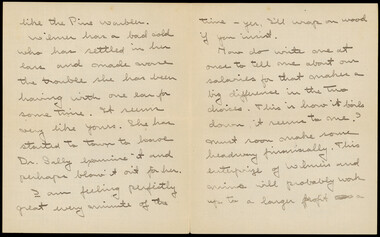 like the Pine warbler.
Wilmer has a bad cold
who has settled in her
ears and made worse
the trouble she has been
having with one ear for
some time. It seems
very like yours. She has
started to town to have
Dr. Sally examine it and
perhaps blow it out for her.
I am feeling perfectly
great every minute of the
time – yes, I'll rap on wood
if you insist.
Now do write me at
once to tell me about our
salaries for that makes a
big difference in the two
choices. This is how it boils
down it seems to me. I
must soon make some
headway financially. This
enterprise of and
mine will probably work
up to a larger profit a